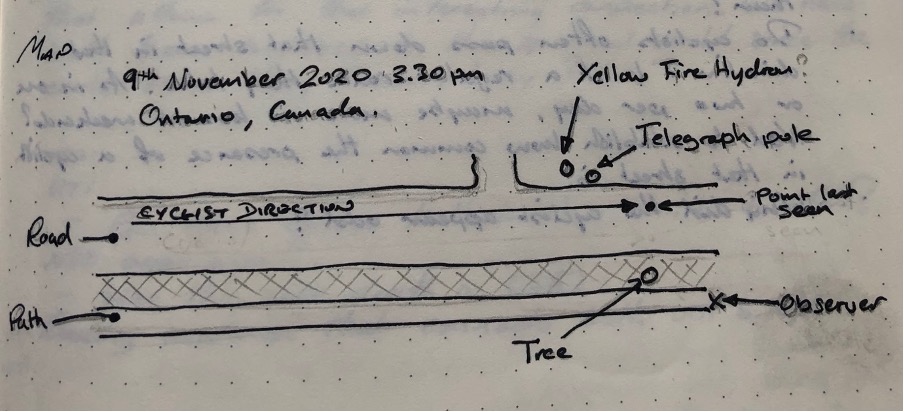 MAP
9th November 2020 3.30pm
Ontario, Canada.
Yellow Fire Hydrant
Telegraph pole
CYCLIST DIRECTION
Point last
seen
Road
Observer
Path
Tree